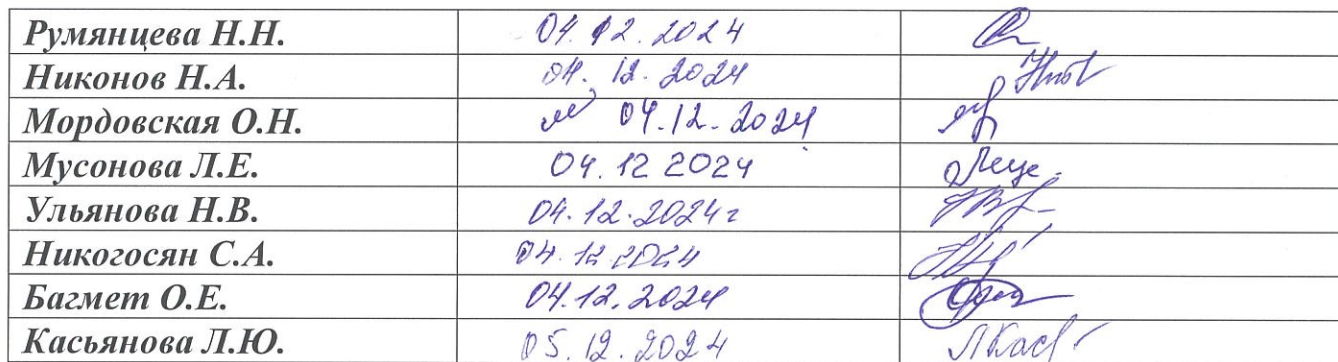 Румянцева Н.Н. 04.12.2024
Никонов Н.А. 04.12.2024
Мордовская О.Н. 04.12.2024
Мусонова Л.Е. 04.12 2024
Ульянова Н.В. 04.12.2024г
Никогосян С.А. 04.12 2024
Багмет О.Е. 04.12.2024
Касьянова Л.Ю. 05.12.2024